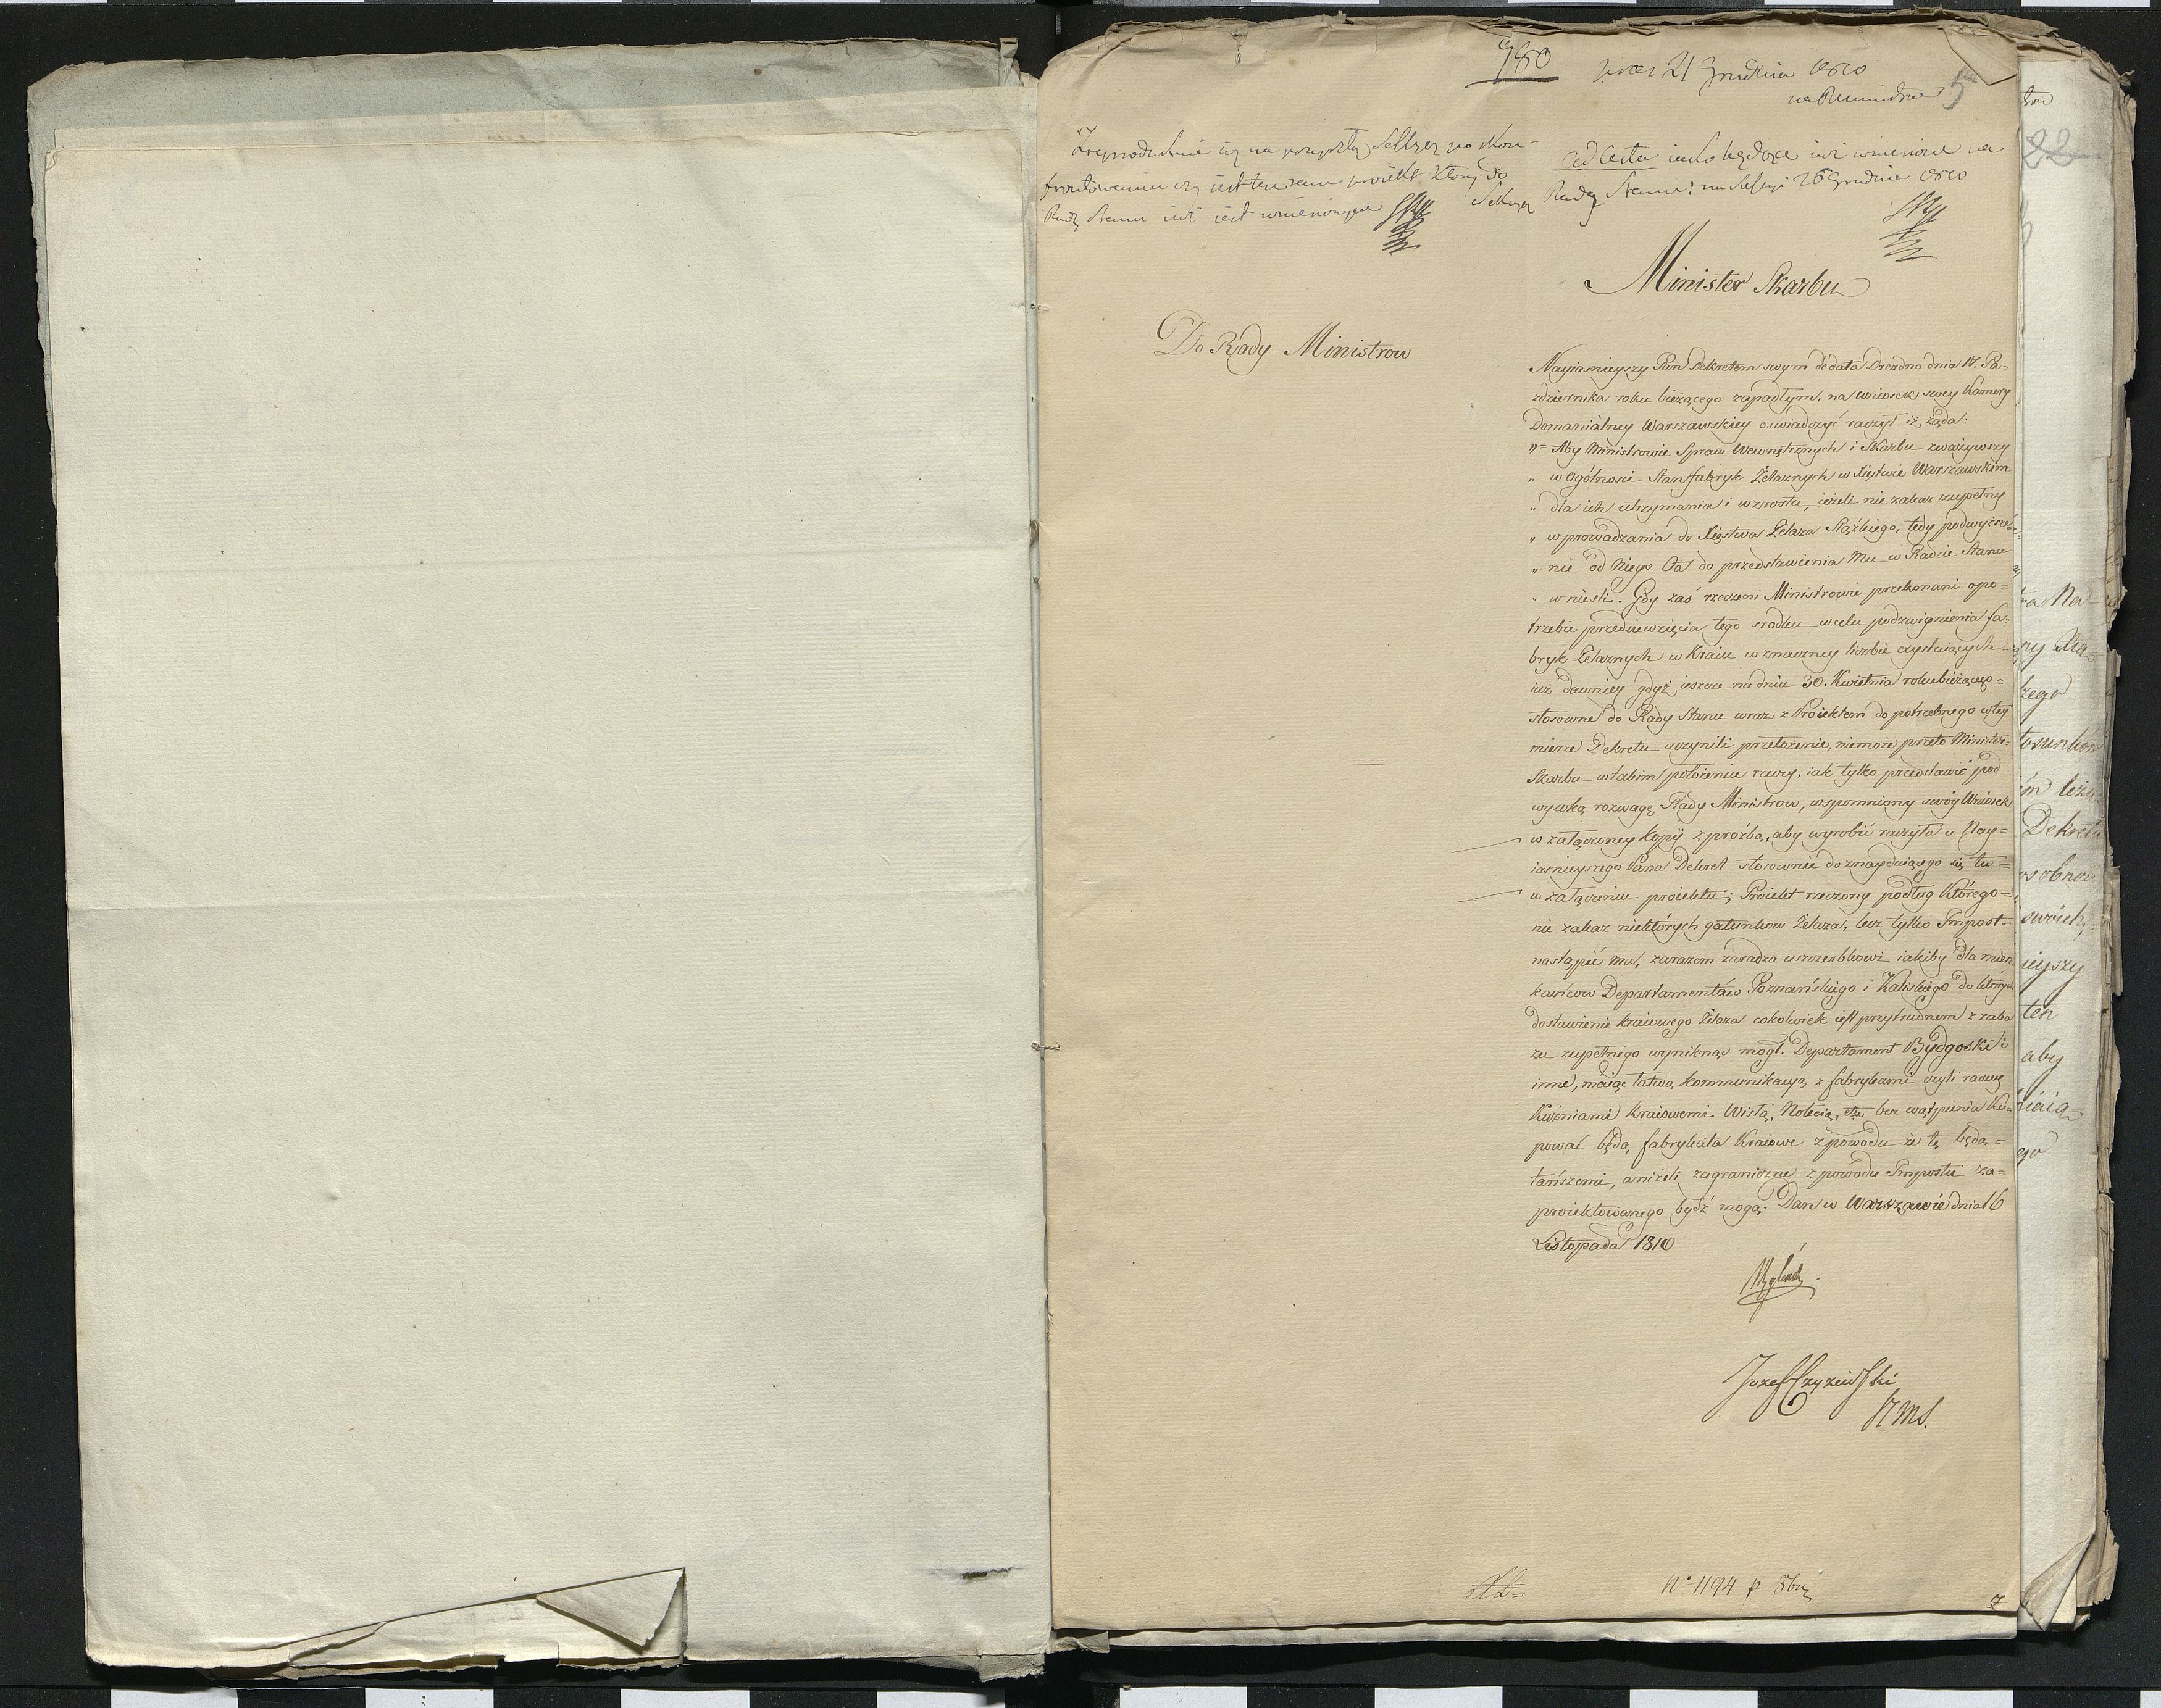 780
21 Grudnia 1810
5
Zreprodukuie się na przyszłey Sessyi po skon-
frontowaniu czy iest ten sam proiekt który do
Rady Stanu iuż iest wniesionym
ad acta iako będące iuż wniesione na
Sessyą Rady Stanu: na Sessyi 26 Grudnia 1810
Minister Skarbu
Do Rady Ministrow
Nayiasnieyszy Pan Dekretem swym de data Drezdno dnia Pa=
zdziernika roku bieżącego zapadłym, na wniosek swey Kamery
Domanialney Warszawskiey oswiadczyć raczył iż żąda:
"= Aby Ministrowie Spraw Wewnętrznych i Skarbu zważywszy
" w Ogólnosci Stan fabryk Żelaznych w Xięstwie Warszawskim
" dla ich utrzymania i wzrostu, ieżeli nie zakaz zupełny
" wprowadzania do Xięstwa Żelaza Slązkiego, tedy podwyższe=
" nie od Niego Cła do przedstawienia Mu w Radzie Stanu
" wniesli. Gdy zaś rzeczeni Ministrowie przekonani o po=
trzebie przedsiewzięcia tego srodku w celu podzwignienia fa=
bryk Żelaznych w Kraiu w znaczney liczbie exystuiących
iuż dawniey gdyż ieszcze na dniu 30. Kwietnia roku bieżącego=
stosowne do Rady Stanu wraz z Proiektem do potrzebnego w tey
mierze Dekretu uczynili przełożenie, niemoże przeto Minister=
Skarbu w takim położeniu rzeczy, iak tylko przedstawić pod
wysoką rozwagę Rady Ministrow, wspomniony swóy Wniosek
w załączoney kopii z prozbą, aby wyrobić raczyła u Nay=
iasnieyszego Pana Dekret stosownie do znayduiącego się tu=
w załączeniu proiektu; Proiekt rzeczony podług Którego=
nie zakaz niektórych gatunkow Żelaza, lecz tylko Impost=
nastąpić ma, zarazem zaradza uszczerbkowi iakiby dla miesz
kańcow Departamentów Poznańskiego i Kaliskiego do których
dostawienie kraiowego Żelaza cokolwiek iest przytrudnem z zaka
zu zupełnego wyniknąć mógł. Departament Bydgoski i
inne, maiąc łatwą kommunikacyą z fabrykami czyli raczey
Kuźniami kraiowemi Wisłą, Notecią, etc bez wątpienia Ku=
pować będą fabrykata Kraiowe z powodu iż te będą=
tańszemi, aniżeli zagraniczne z powodu Impostu za=
proiektowanego bydź mogą. Dan w Warszawie dnia 16
Listopada 1810
Józef Czyżewski
N° 1194 p 8bry
22
Dekretu
swoich,
ten
aby